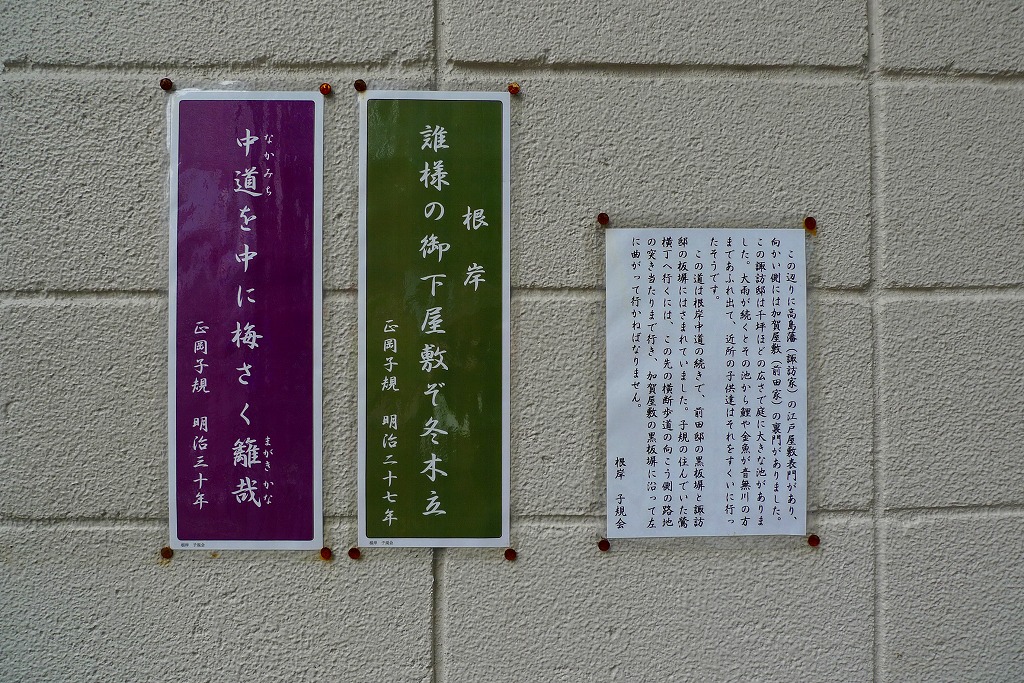 この辺りに高島藩(諏訪家)の江戸屋敷表門があり、
向かい側には加賀屋敷(前田家)の裏門がありました。
この諏訪邸は千坪ほどの広さで庭に大きな池がありま
した。大雨が続くとその池から鯉や金魚が音無川の方
まであふれ出て、近所の子供達はそれをすくいに行っ
たそうです。
この道は根岸中道の続きで、前田邸の黒板塀と諏訪
邸の板塀にはさまれていました。子規の住んでいた鶯
横丁へ行くには、この先の横断歩道の向こう側の路地
の突き当たりまで行き、加賀屋敷の黒板塀に沿って左
に曲がって行かねばなりません。
根岸 子規会
根岸
誰様の御下屋敷ぞ冬木立
正岡子規 明治二十七年
根岸 子規会
なかみち まがきかな
中道を中に梅さく籬哉
正岡子規 明治三十年
根岸 子規会